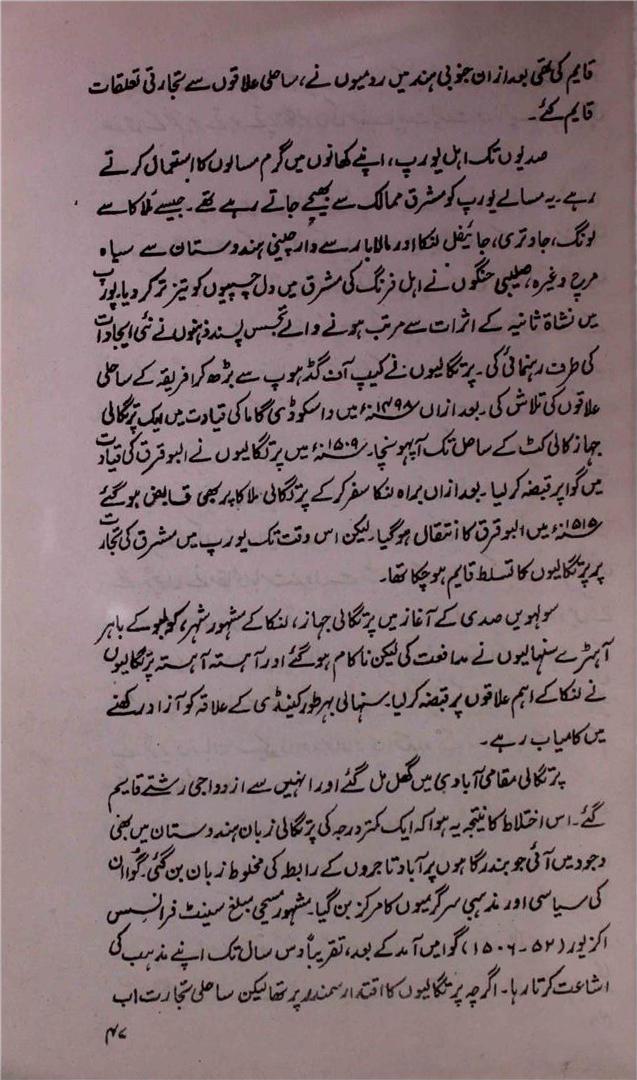 قایم کی تھی بعد ازاں جنوبی ہند میں رومیوں نے، ساحلی علاقوں سے تجارتی تعلقات
قایم کئے۔
صدیوں تک اہل یورپ، اپنے کھانوں میں گرم مسالوں کا استعمال کرتے
رہے۔ یہ مسالے یورپ کو مشرق ممالک سے بھیجے جاتے رہے تھے۔ جیسے ملاکا سے
لونگ، جاوتری، جائفل لنکا اور مالابار سے دار چینی ہندوستان سے سیاہ
مرچ وغیرہ، صلیبی جنگوں نے اہل فرنگ کی مشرق میں دل چسپیوں کو تیز تر کر دیا۔ یورپ
میں نشاۃ ثانیہ کے اثرات سے مرتب ہونے والے تجسس پسند ذہنوں نے نئی ایجادات
کی طرف رہنمائی کی۔ پرتگالیوں نے کیپ آف گڈ ہوپ سے بڑھ کر افریقہ کے ساحلی
علاقوں کی تلاش کی۔ بعد ازاں ۱۴۹۸ء میں واسکوڈی گاما کی قیادت میں ایک پرتگالی
جہاز کالی کٹ کے ساحل تک آپہونچا۔ ۱۵۰۹ء میں پرتگالیوں نے البوقرق کی قیادت
میں گوا پر قبضہ کر لیا۔ بعد ازاں براہ لنکا سفر کر کے پرتگالی ملاکا پر بھی قابض ہو گئے
۱۵۱۵ء میں البوقرق کا انتقال ہوگیا۔ لیکن اس وقت تک یورپ میں مشرق کی تجارت
پر پرتگالیوں کا تسلط قایم ہو چکا تھا۔
سولہویں صدی کے آغاز میں پرتگالی جہاز، لنکا کے مشہور شہر، کولمبو کے باہر
آٹہرے سنہالیوں نے مدافعت کی لیکن ناکام ہو گئے اور آہستہ آہستہ پرتگالیوں
نے لنکا کے اہم علاقوں پر قبضہ کر لیا۔ سنہالی بہر طور کینڈی کے علاقہ کو آزاد رکھنے
میں کامیاب رہے۔
پرتگالی مقامی آبادی میں گھل مل گئے اور انہیں سے ازدواجی رشتے قایم
گئے۔ اس اختلاط کا نتیجہ یہ ہوا کہ ایک کمتر درجہ کی پرتگالی زبان ہندوستان میں بھی
وجود میں آئی جو بندرگاہوں پر آباد تاجروں کے رابطہ کی مخلوط زبان بن گئی۔ گوا ان
کی سیاسی اور مذہبی سرگرمیوں کا مرکز بن گیا۔ مشہور مسیحی مبلغ سینٹ فرانسس
اکزیور (۵۲۔۱۵۰۶) گوا میں آمد کے بعد، تقریباً دس سال تک اپنے مذہب کی
اشاعت کرتا رہا۔ اگرچہ پرتگالیوں کا اقتدار سمندر پر تھا لیکن ساحلی تجارت اب
۴۷